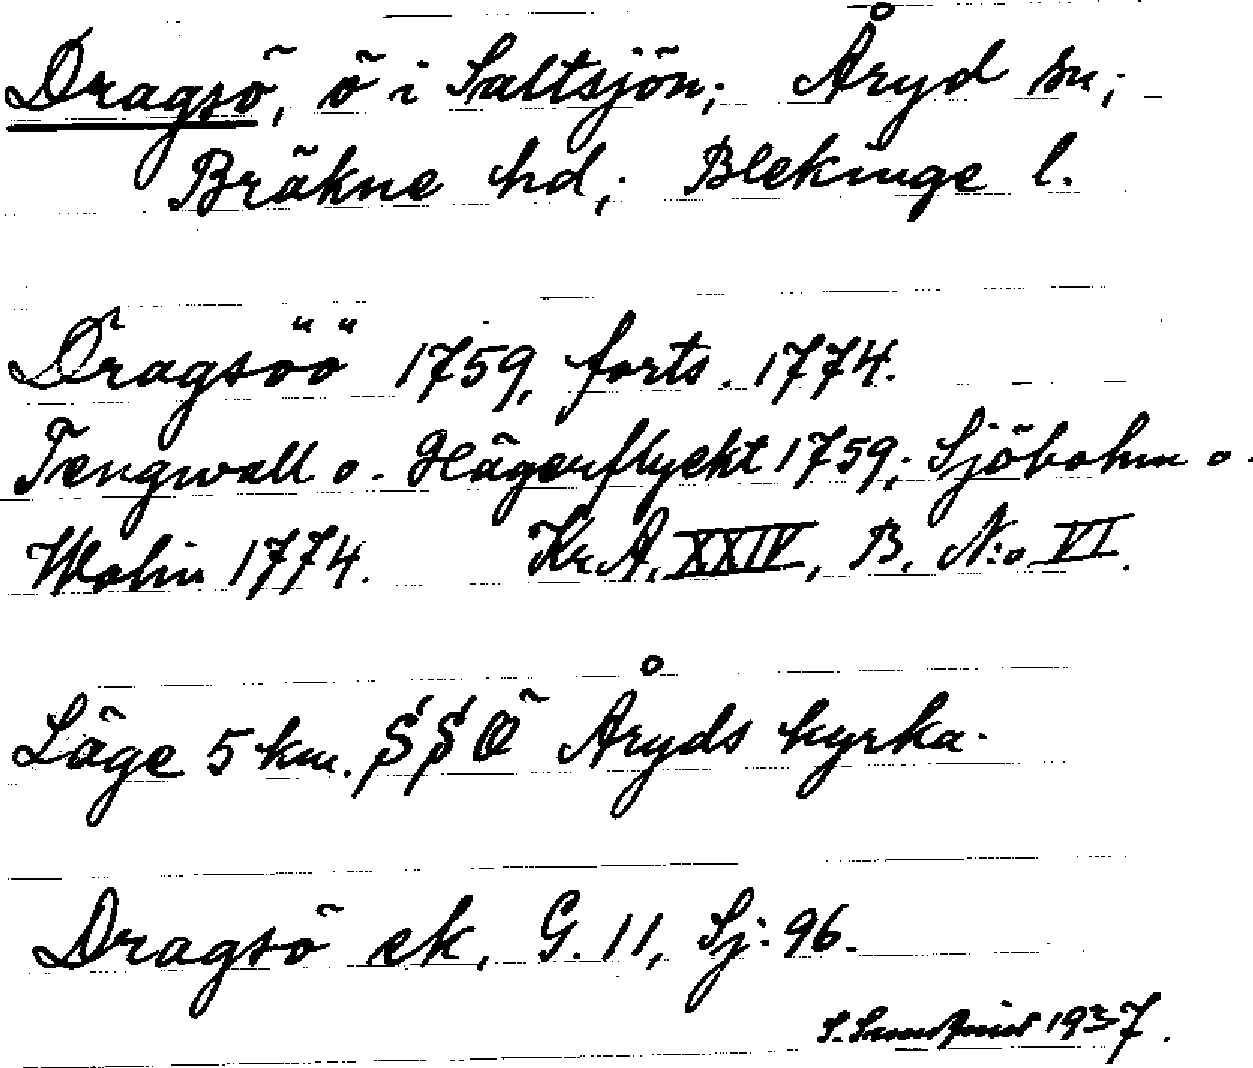 Dragsö, ö i Saltsjön; Åryd sn;
Bräkne hd; Blekinge l.
Dragsöö 1759, forts. 1774.
Tengwall o. Hägerflyckt 1759; Sjöbohm o.
Wolin 1774. Kr.A. XXIV, B. N:o VI.
Läge 5 km. SSÖ Åryds kyrka.
Dragsö ek. G. 11, Sj. 96.
S. 1937.